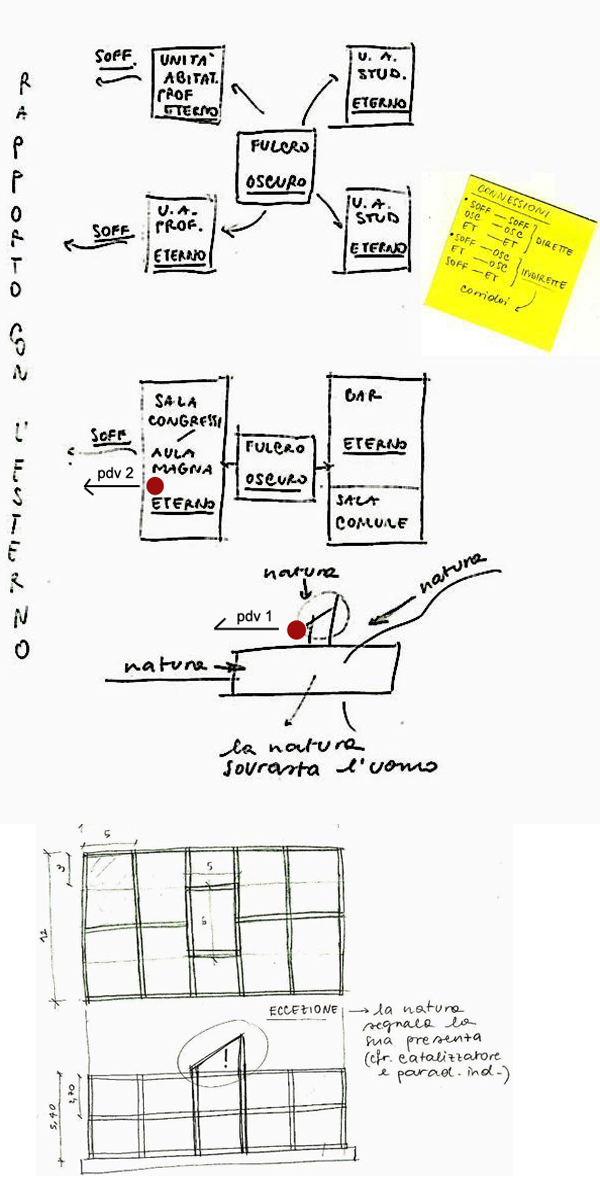 RAPPORTO CON L'ESTERNO
SOFF.
UNITA'
ABITAT.
PROF
ETERNO
U. A.
STUD.
ETERNO
FULCRO
OSCURO
SOFF
U. A.
PROF.
ETERNO
U. A.
STUD
ETERNO
CONNESSIONI
• SOFF — SOFF
OSC — OSC
ET — ET
DIRETTE
• SOFF — OSC
ET — OSC
SOFF — ET
INDIRETTE
corridoi
SOFF
pdv 2
SALA
CONGRESSI
/
AULA
MAGNA
ETERNO
FULCRO
OSCURO
BAR
ETERNO
SALA
COMUNE
natura
natura
pdv 1
natura
la natura
sovrasta l'uomo
5
3
12
5
6
ECCEZIONE → la natura
segnala la
sua presenza
(cfr. catalizzatore
e parad. ind.)
!
5,40
2,70